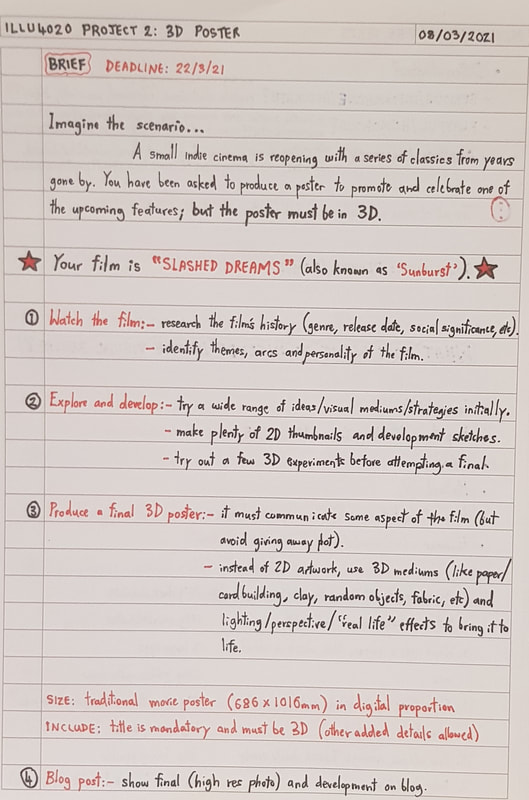 ILLU4020 PROJECT 2: 3D POSTER
08/03/2021
BRIEF DEADLINE: 22/3/21
Imagine the scenario...
A small indie cinema is reopening with a series of classics from years
gone by. You have been asked to produce a poster to promote and celebrate one of
the upcoming features; but the poster must be in 3D.
Your film is "SLASHED DREAMS" (also known as 'Sunburst').
① Watch the film:- research the film's history (genre, release date, social significance, etc).
- identify themes, arcs and personality of the film.
② Explore and develop:- try a wide range of ideas/visual mediums/strategies initially.
- make plenty of 2D thumbnails and development sketches.
- try out a few 3D experiments before attempting a final.
③ Produce a final 3D poster:- it must communicate some aspect of the film (but
avoid giving away plot).
- instead of 2D artwork, use 3D mediums (like paper/
card building, clay, random objects, fabric, etc) and
lighting/perspective/"real life" effects to bring it to
life.
SIZE: traditional movie poster (686 x 1016mm) in digital proportion
INCLUDE: title is mandatory and must be 3D (other added details allowed)
④ Blog post:- show final (high res photo) and development on blog.